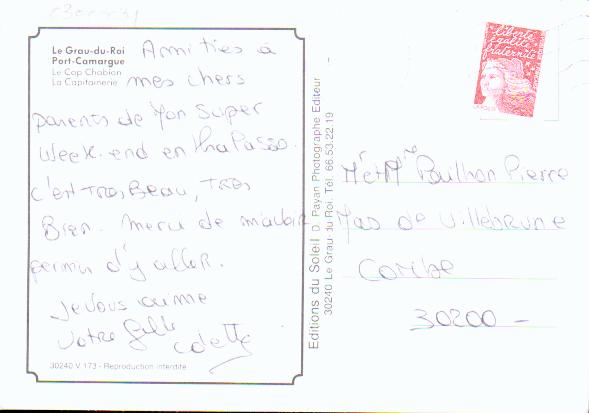 Le Grau-du-Roi
Port-Camargue
Le Cap Chabian
La Capitainerie
Amitiés à
mes chers
parents de mon super
Week-end en
c'est Très Beau, Très
Bien. merci de m'avoir
permis d'y aller.
Je vous aime
votre fille
Colette
30240 V 173 - Reproduction interdite
Editions du Soleil D. Payan Photographe Editeur
30240 Le Grau du Roi. Tél. 66.53.22.19
liberté
égalité
fraternité
Mr et Mme Pierre
Mas de Villebrune
30200 -